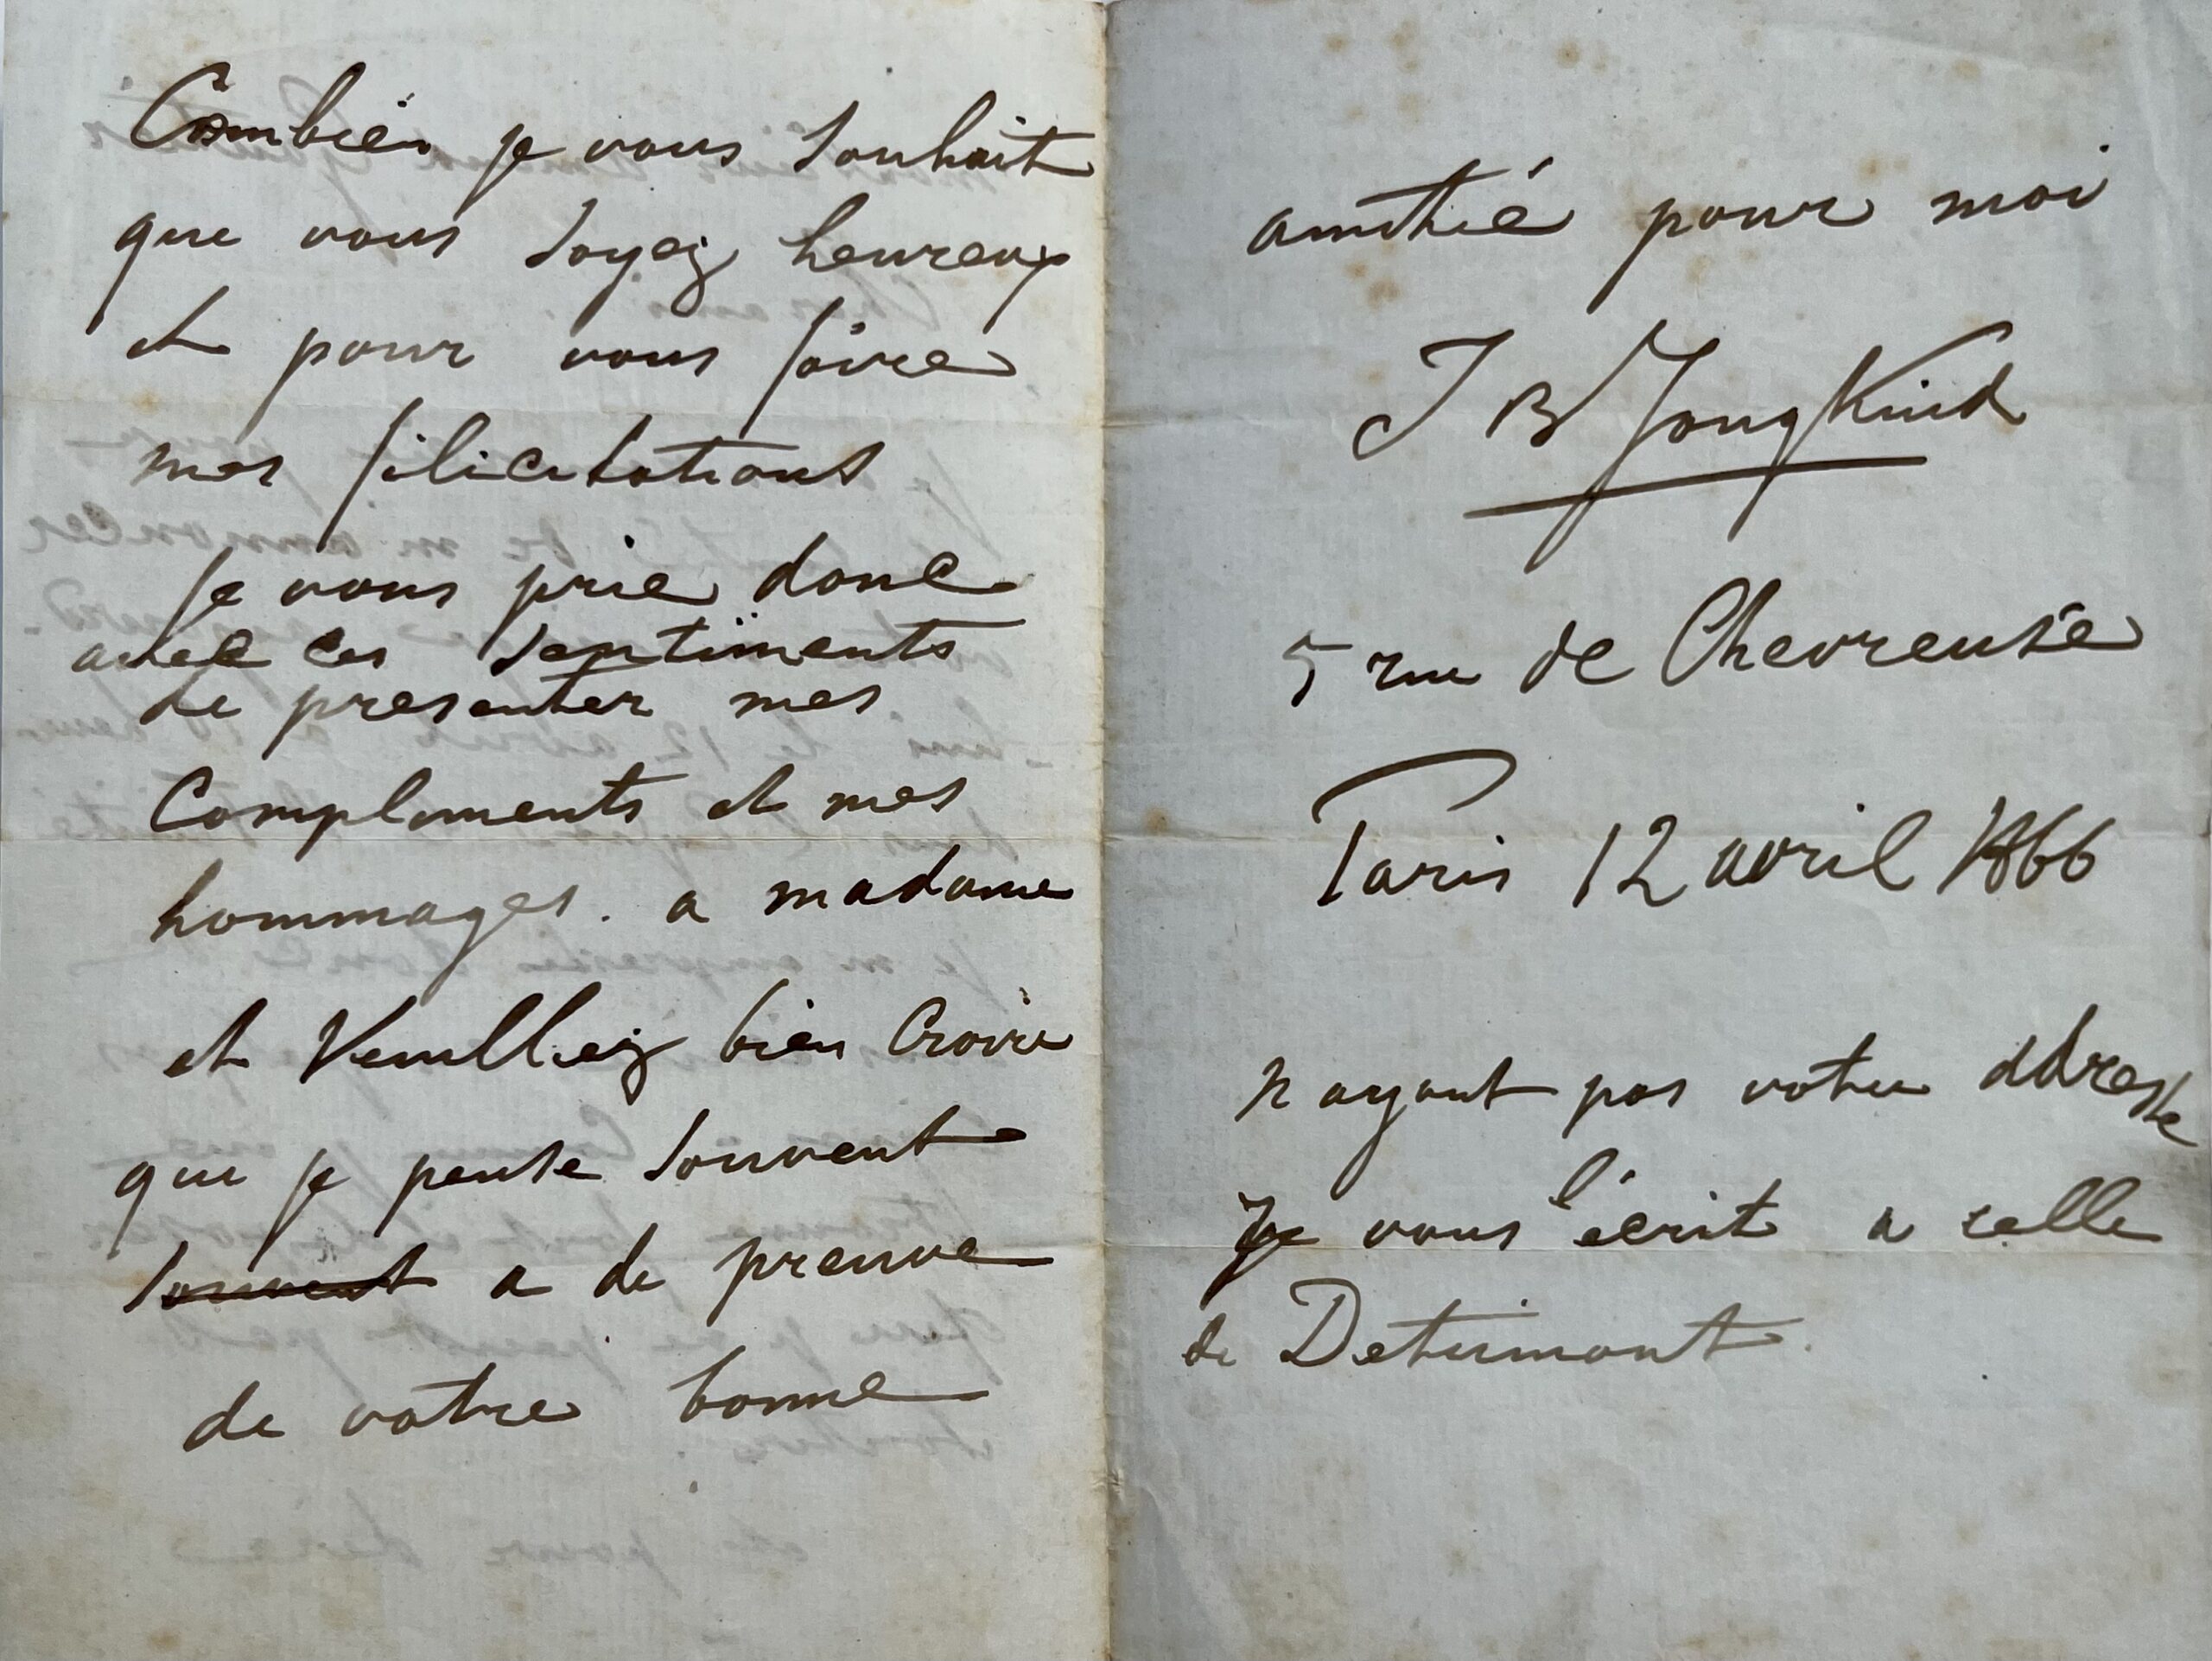 Combien je vous souhait
que vous soyez heureux
et pour vous faire
mes filicitations
je vous prie donc
avec ces sentiments
de presenter mes
Compliments et mes
hommages. a madame
et Veuillez bien Croire
que je pense souvent
souvent a de preuve
de votre bonne
amitié pour moi
J B Jongkind
5 rue de Chevreuse
Paris 12 avril 1866
n ayant pas votre adresse
Je vous l'écrit a celle
de Detrimont.